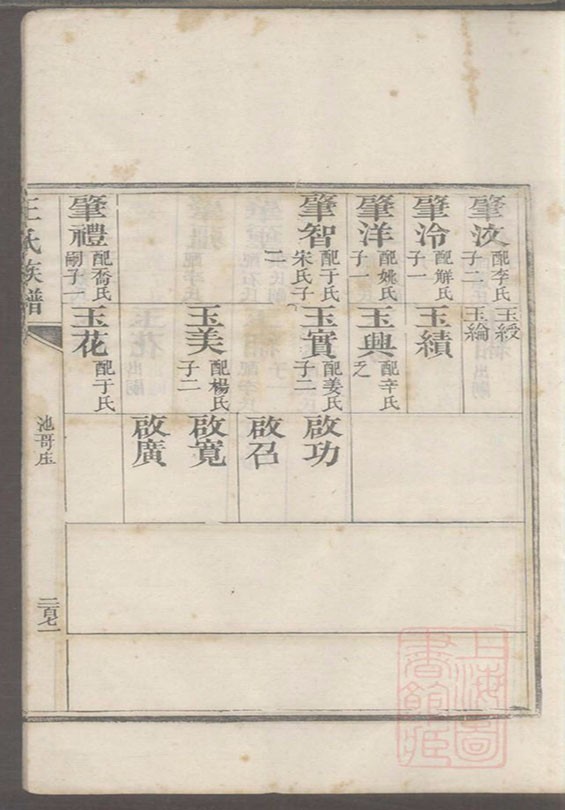 肇汶 配李氏 子二
玉綬
玉綸
肇泠 配解氏 子一
玉績
肇洋 配姚氏 子一
玉興 配辛氏 乏
肇智 配于氏 宋氏子二
玉實 配姜氏 子二
啟功
啟召
玉美 配楊氏 子二
啟寬
啟廣
肇禮 配喬氏 嗣子一
玉花 配于氏
王氏族譜
池哥庄
二百七一
上海圖書館藏